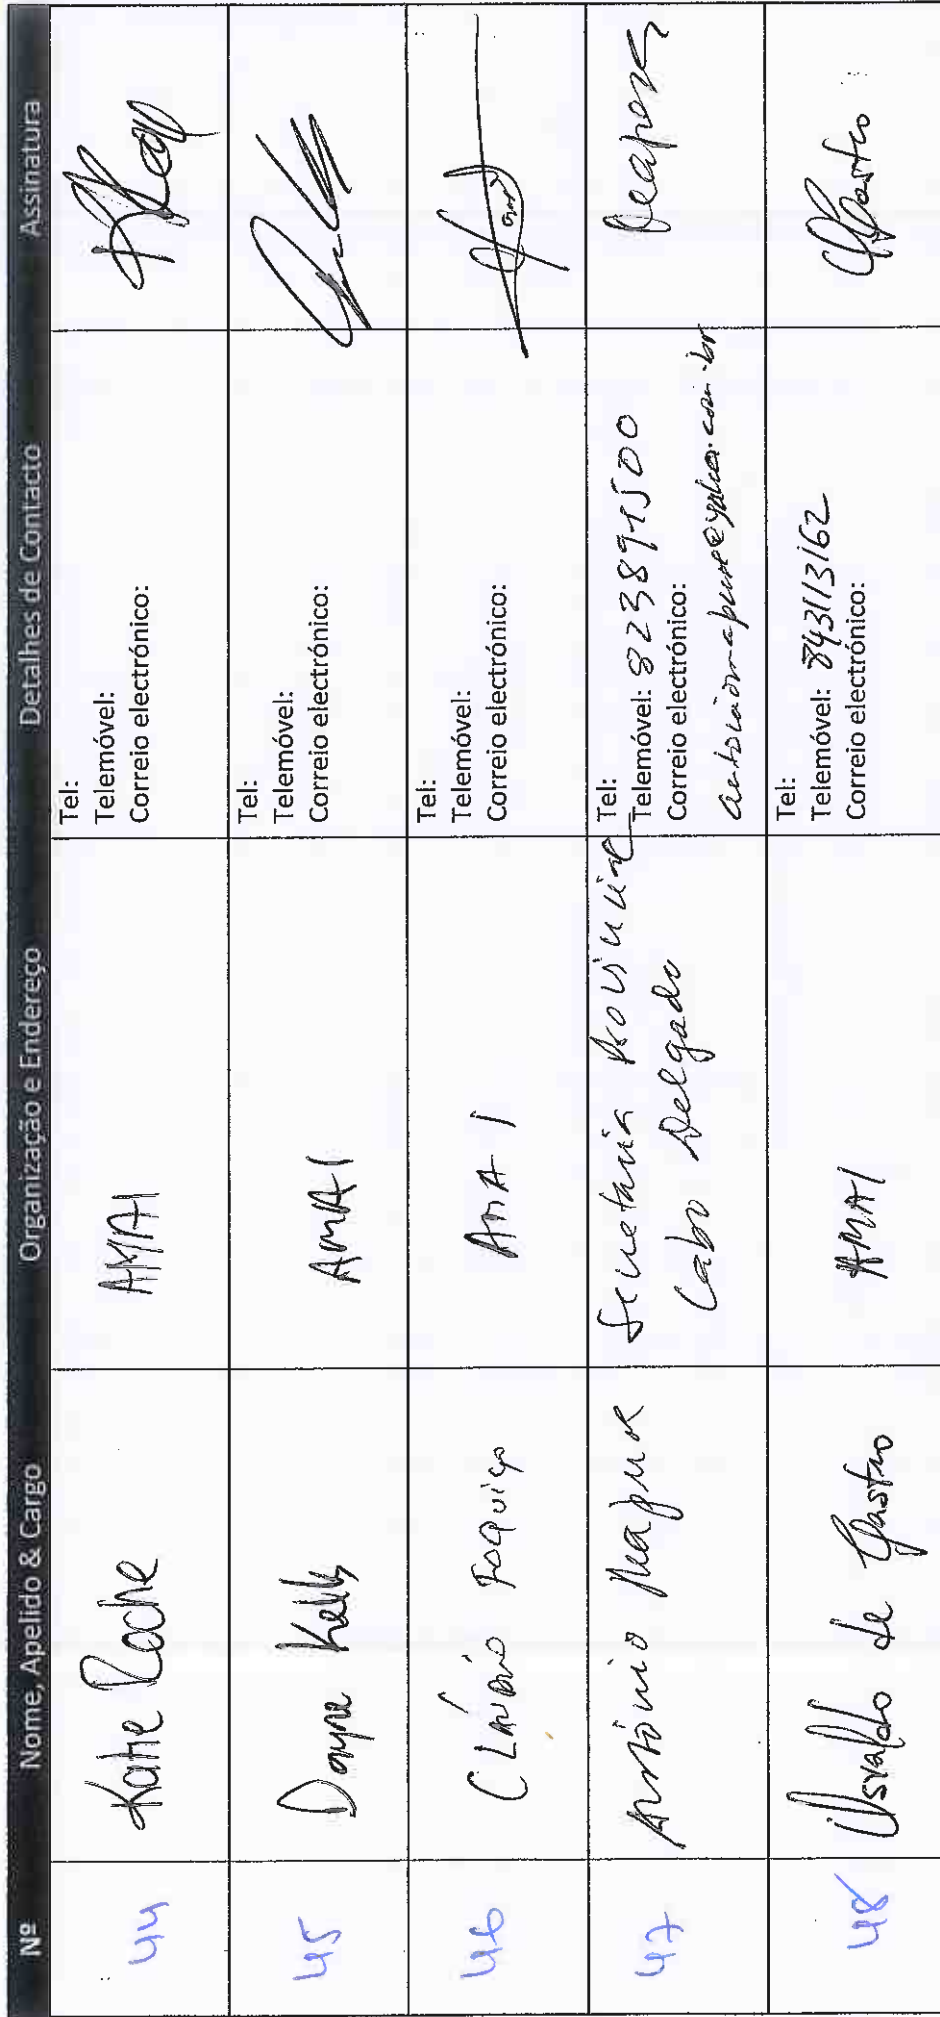 Nº Nome, Apelido & Cargo Organização e Endereço Detalhes de Contacto Assinatura
44 Katie Roche AMA1
Tel:
Telemóvel:
Correio electrónico:
45 Dayne Kelly AMA1
Tel:
Telemóvel:
Correio electrónico:
46 CLÁUDIO AMA1
Tel:
Telemóvel:
Correio electrónico:
47 António Mapure Secretaria Provincial
Cabo Delgado
Tel:
Telemóvel: 823891500
Correio electrónico:
48 Osvaldo de Castro AMA1
Tel:
Telemóvel: 843113162
Correio electrónico: